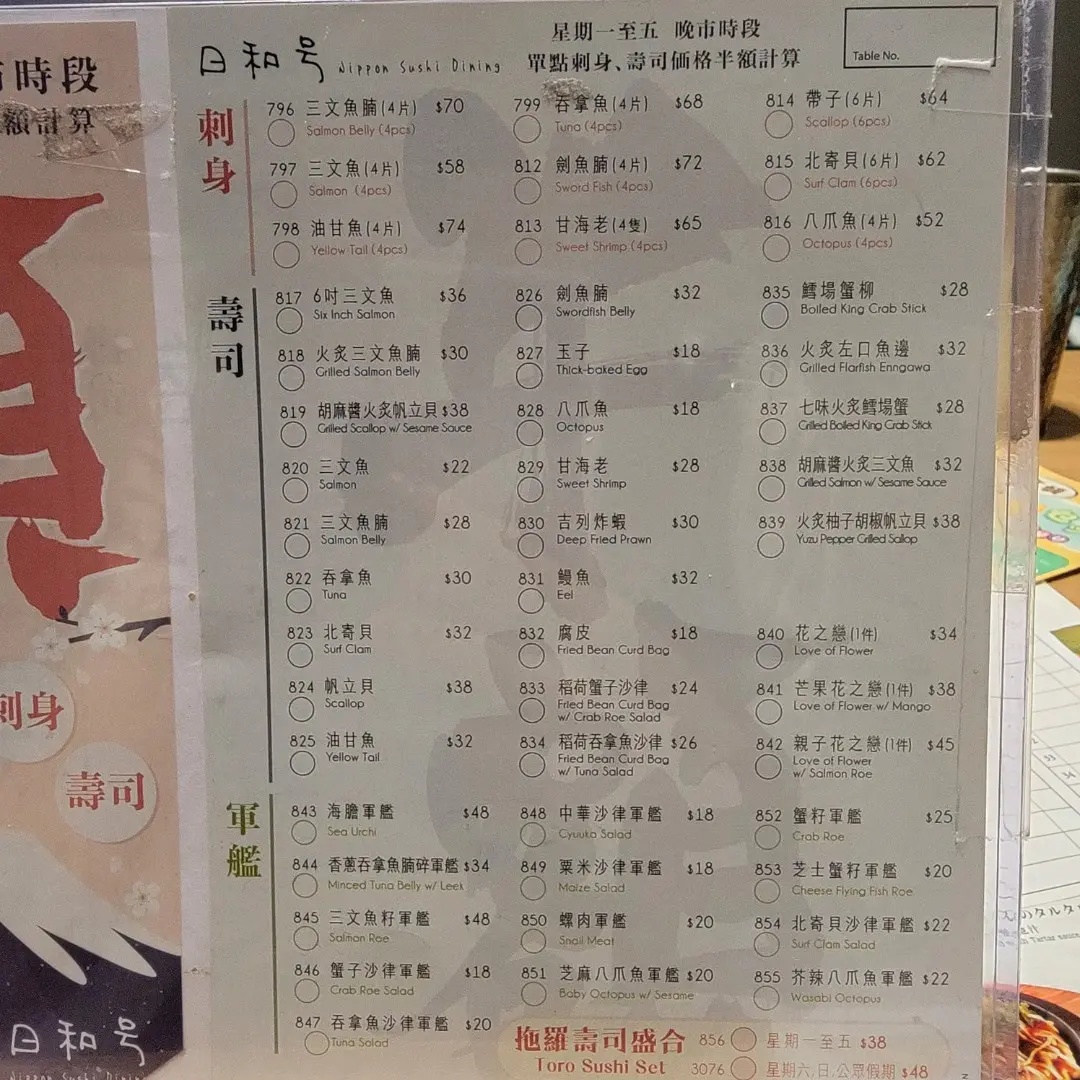 市時段
額計算
刺身
壽司
日和号
Nippon Sushi Dining
日和号 Nippon Sushi Dining
星期一至五 晚市時段
單點刺身、壽司価格半額計算
Table No.
刺身
796 三文魚腩(4片) $70
Salmon Belly (4pcs)
797 三文魚(4片) $58
Salmon (4pcs)
798 油甘魚(4片) $74
Yellow Tail (4pcs)
799 吞拿魚(4片) $68
Tuna (4pcs)
812 劍魚腩(4片) $72
Sword Fish (4pcs)
813 甘海老(4隻) $65
Sweet Shrimp (4pcs)
814 帶子(6片) $64
Scallop (6pcs)
815 北寄貝(6片) $62
Surf Clam (6pcs)
816 八爪魚(4片) $52
Octopus (4pcs)
壽司
817 6吋三文魚 $36
Six Inch Salmon
818 火炙三文魚腩 $30
Grilled Salmon Belly
819 胡麻醬火炙帆立貝 $38
Grilled Scallop w/ Sesame Sauce
820 三文魚 $22
Salmon
821 三文魚腩 $28
Salmon Belly
822 吞拿魚 $30
Tuna
823 北寄貝 $32
Surf Clam
824 帆立貝 $38
Scallop
825 油甘魚 $32
Yellow Tail
826 劍魚腩 $32
Swordfish Belly
827 玉子 $18
Thick-baked Egg
828 八爪魚 $18
Octopus
829 甘海老 $28
Sweet Shrimp
830 吉列炸蝦 $30
Deep Fried Prawn
831 鰻魚 $32
Eel
832 腐皮 $18
Fried Bean Curd Bag
833 稻荷蟹子沙律 $24
Fried Bean Curd Bag
w/ Crab Roe Salad
834 稻荷吞拿魚沙律 $26
Fried Bean Curd Bag
w/ Tuna Salad
835 鱈場蟹柳 $28
Boiled King Crab Stick
836 火炙左口魚邊 $32
Grilled Flarfish Enngawa
837 七味火炙鱈場蟹 $28
Grilled Boiled King Crab Stick
838 胡麻醬火炙三文魚 $32
Grilled Salmon w/ Sesame Sauce
839 火炙柚子胡椒帆立貝 $38
Yuzu Pepper Grilled Sallop
840 花之戀(1件) $34
Love of Flower
841 芒果花之戀(1件) $38
Love of Flower w/ Mango
842 親子花之戀(1件) $45
Love of Flower
w/ Salmon Roe
軍艦
843 海膽軍艦 $48
Sea Urchi
844 香蔥吞拿魚腩碎軍艦 $34
Minced Tuna Belly w/ Leek
845 三文魚籽軍艦 $48
Salmon Roe
846 蟹子沙律軍艦 $18
Crab Roe Salad
847 吞拿魚沙律軍艦 $20
Tuna Salad
848 中華沙律軍艦 $18
Cyuuka Salad
849 粟米沙律軍艦 $18
Maize Salad
850 螺肉軍艦 $20
Snail Meat
851 芝麻八爪魚軍艦 $20
Baby Octopus w/ Sesame
852 蟹籽軍艦 $25
Crab Roe
853 芝士蟹籽軍艦 $20
Cheese Flying Fish Roe
854 北寄貝沙律軍艦 $22
Surf Clam Salad
855 芥辣八爪魚軍艦 $22
Wasabi Octopus
拖羅壽司盛合
Toro Sushi Set
856 星期一至五 $38
3076 星期六,日,公眾假期 $48
のタルタ
Tartar sauce
33
34